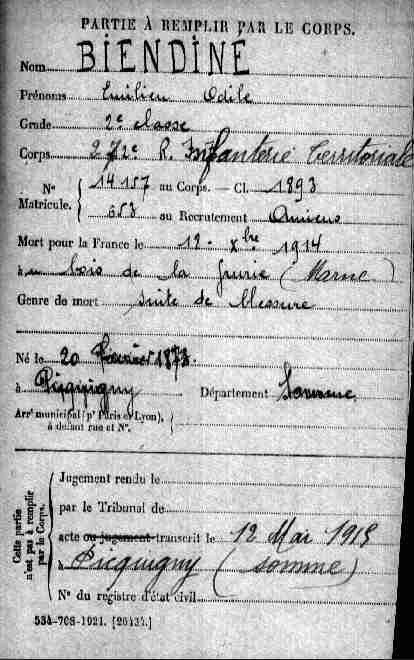 PARTIE À REMPLIR PAR LE CORPS.
Nom BIENDINÉ
Prénoms Emilien Odile
Grade 2e classe
Corps 272e R. Infanterie Territoriale
N° Matricule. { 14157 au Corps. — Cl. 1893
653 au Recrutement Amiens
Mort pour la France le 12 - Xbre 1914
à bois de la Grurie (Marne)
Genre de mort suite de blessure
Né le 20 Février 1873.
à Picquigny Département Somme
Arrt municipal (pr Paris et Lyon), à défaut rue et N°.
Cette partie n'est pas à remplir par le Corps.
Jugement rendu le
par le Tribunal de
acte ou jugement transcrit le 12 Mai 1915
à Picquigny (Somme)
N° du registre d'état civil
534-708-1921. [26434.]